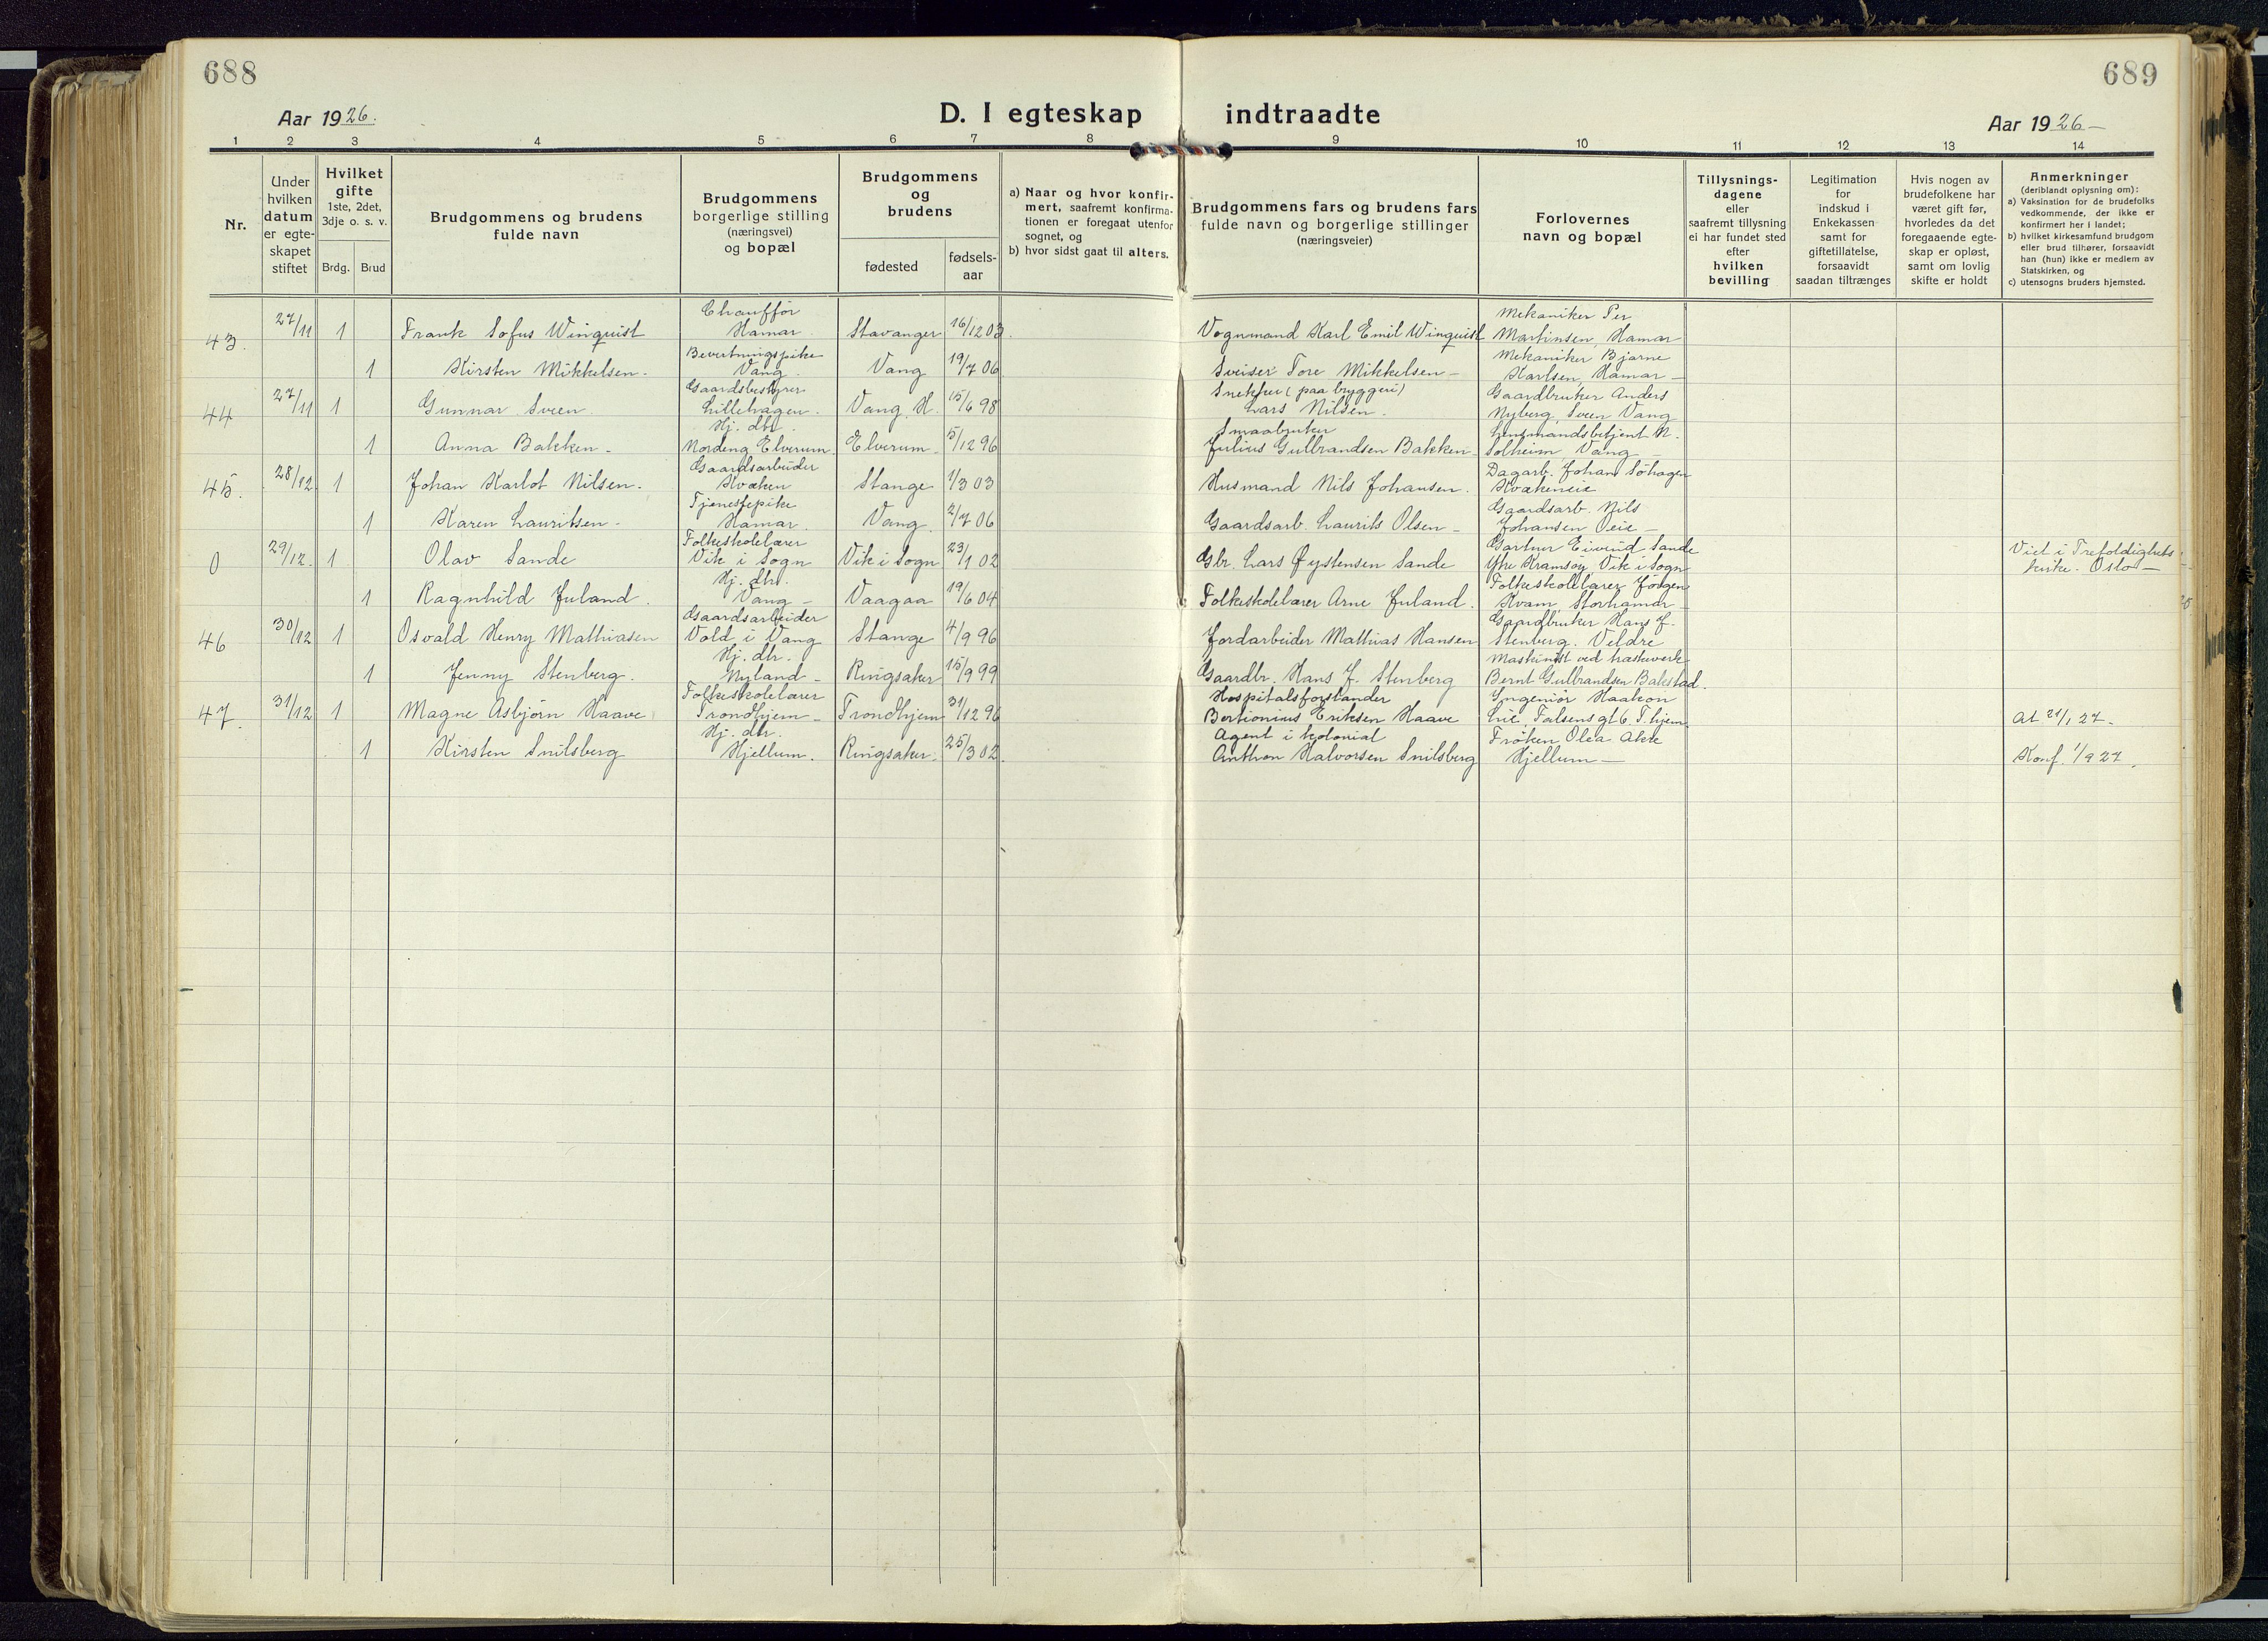 688
689
Aar 1926.
D. I egteskap indtraadte
Aar 1926 –
1 2 3 4 5 6 7 8 9 10 11 12 13 14
Nr.
Under
hvilken
datum
er egte-
skapet
stiftet
Hvilket
gifte
1ste, 2det,
3dje o. s. v.
Brdg. Brud
Brudgommens og brudens
fulde navn
Brudgommens
borgerlige stilling
(næringsvei)
og bopæl
Brudgommens
og
brudens
fødested
fødsels-
aar
a) Naar og hvor konfir-
mert, saafremt konfirma-
tionen er foregaat utenfor
sognet, og
b) hvor sidst gaat til alters.
Brudgommens fars og brudens fars
fulde navn og borgerlige stillinger
(næringsveier)
Forlovernes
navn og bopæl
Tillysnings-
dagene
eller
saafremt tillysning
ei har fundet sted
efter
hvilken
bevilling
Legitimation
for
indskud i
Enkekassen
samt for
giftetillatelse,
forsaavidt
saadan tiltrænges
Hvis nogen av
brudefolkene har
været gift før,
hvorledes da det
foregaaende egte-
skap er opløst,
samt om lovlig
skifte er holdt
Anmerkninger
(deriblandt oplysning om):
a) Vaksination for de brudefolks
vedkommende, der ikke er
konfirmert her i landet;
b) hvilket kirkesamfund brudgom
eller brud tilhører, forsaavidt
han (hun) ikke er medlem av
Statskirken, og
c) utensogns bruders hjemsted.
Chauffør Mekaniker Per
43. 27/11 1 Frank Sofus Winquist Hamar Stavanger 16/12 03. Vognmand Karl Emil Winquist Martinsen, Hamar
Bevertningspike Mekaniker Bjarne
1 Kirsten Mikkelsen. Vang. Vang 19/7 06 Sveiser Tore Mikkelsen – Karlsen, Hamar –
Gaardsbestyrer Snekker (paa bryggeri) Gaardbruker Anders
44 27/11 1 Gunnar Sveen Lillehagen. Vang. H. 15/6 98 Lars Nilsen. Nyberg, Sveen Vang
Hj. dtr. Smaabruker Lensmandsbetjent N.
1 Anna Bakken. Nordeng Elverum Elverum. 5/12 96 Julius Gulbrandsen Bakken Solheim, Vang –
Gaardsarbeider Dagarb. Johan Söhagen
45. 28/12 1 Johan Karlot Nilsen. Kvæken Stange 1/3 03 Husmand Nils Johansen. Kvækeneie
Tjenestepike Gaardsarb. Nils
1 Karen Lauritsen. Hamar. Vang. 2/7 06 Gaardsarb. Laurits Olsen – Johansen Oeie –
Folkeskolelærer Gartner Eivind Sande
0 29/12. 1 Olav Sande Vik i Sogn Vik i Sogn 23/1 02 Gbr. Lars Øystensen Sande Ytre Kramsøy Vik i Sogn Viet i Trefoldighets
kirke. Oslo –
Hj. dtr. Folkeskolelærer Jörgen
1 Ragnhild Juland. Vang – Vaagaa 19/6 04 Folkeskolelærer Arne Juland. Kvam Storhamar –
Gaardsarbeider Gaardbruker Hans J.
46 30/12 1 Osvald Henry Mathiasen Vold i Vang Stange 4/9 96 Jordarbeider Mathias Hansen Stenberg. Veldre
Hj. dtr. Maskinist ved træskeverk
1 Jenny Stenberg. Nyland – Ringsaker 15/9 99 Gaardbr. Hans J. Stenberg Bernt Gulbrandsen Bakstad.
Folkeskolelærer Hospitalsforstander Ingeniør Haakon
47. 31/12 1 Magne Asbjørn Haave Trondhjem – Trondhjem 31/12 96 Bertionius Eriksen Haave Lie. Falsens gt 6. T.hjem At 21/1 27 –
Hj. dtr. Agent i kolonial Frøken Olea Akre
1 Kirsten Snilsberg Hjellum. Ringsaker. 25/3 02. Anthon Halvorsen Snilsberg Hjellum – Konf. 1/9 27.